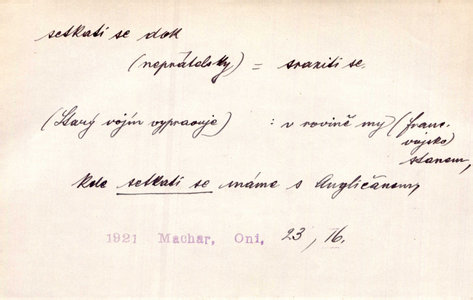 setkati se dok
(nepřátelsky) = sraziti se.
(Starý vojín vypravuje) : v rovině my (franc.
vojsko)
stanem,
kde setkati se máme s Angličanem,
1921 Machar, Oni, 23, 16.